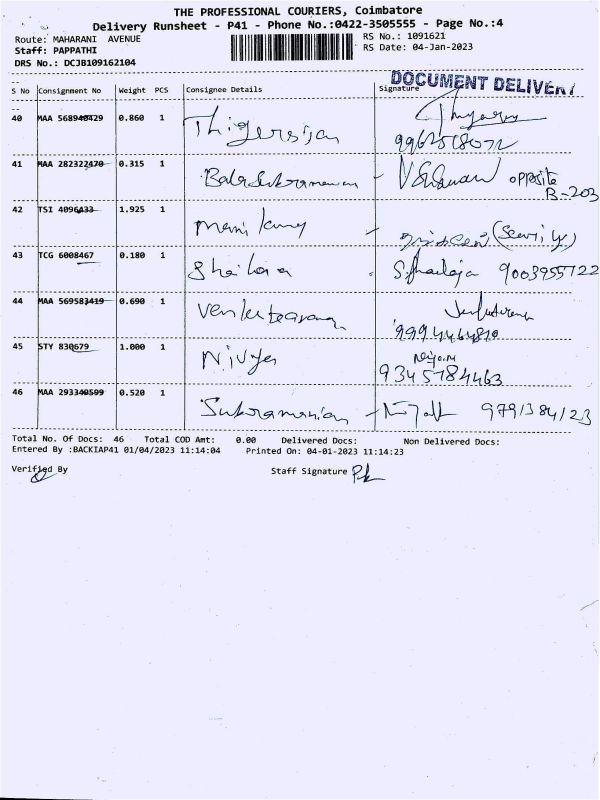 THE PROFESSIONAL COURIERS, Coimbatore
Delivery Runsheet - P41 - Phone No.:0422-3505555 - Page No.:4
Route: MAHARANI AVENUE
RS No.: 1091621
Staff: PAPPATHI
RS Date: 04-Jan-2023
DRS No.: DCJB109162104
DOCUMENT DELIVERY
S No Consignment No Weight PCS Consignee Details Signature
40 MAA 568940429 0.860 1
9962518072
41 MAA 282322470 0.315 1 Balasubramanian opposite
B-203
42 TSI 4096433 1.925 1 mani kumy
43 TCG 6008467 0.180 1 Shailaja S.Shailaja 9003955722
44 MAA 569583419 0.690 1
9994464810
45 STY 830679 1.000 1 Nivya
9345784463
46 MAA 293340599 0.520 1 Subramanian 9791384123
Total No. Of Docs: 46 Total COD Amt: 0.00 Delivered Docs: Non Delivered Docs:
Entered By :BACKIAP41 01/04/2023 11:14:04 Printed On: 04-01-2023 11:14:23
Verified By Staff Signature